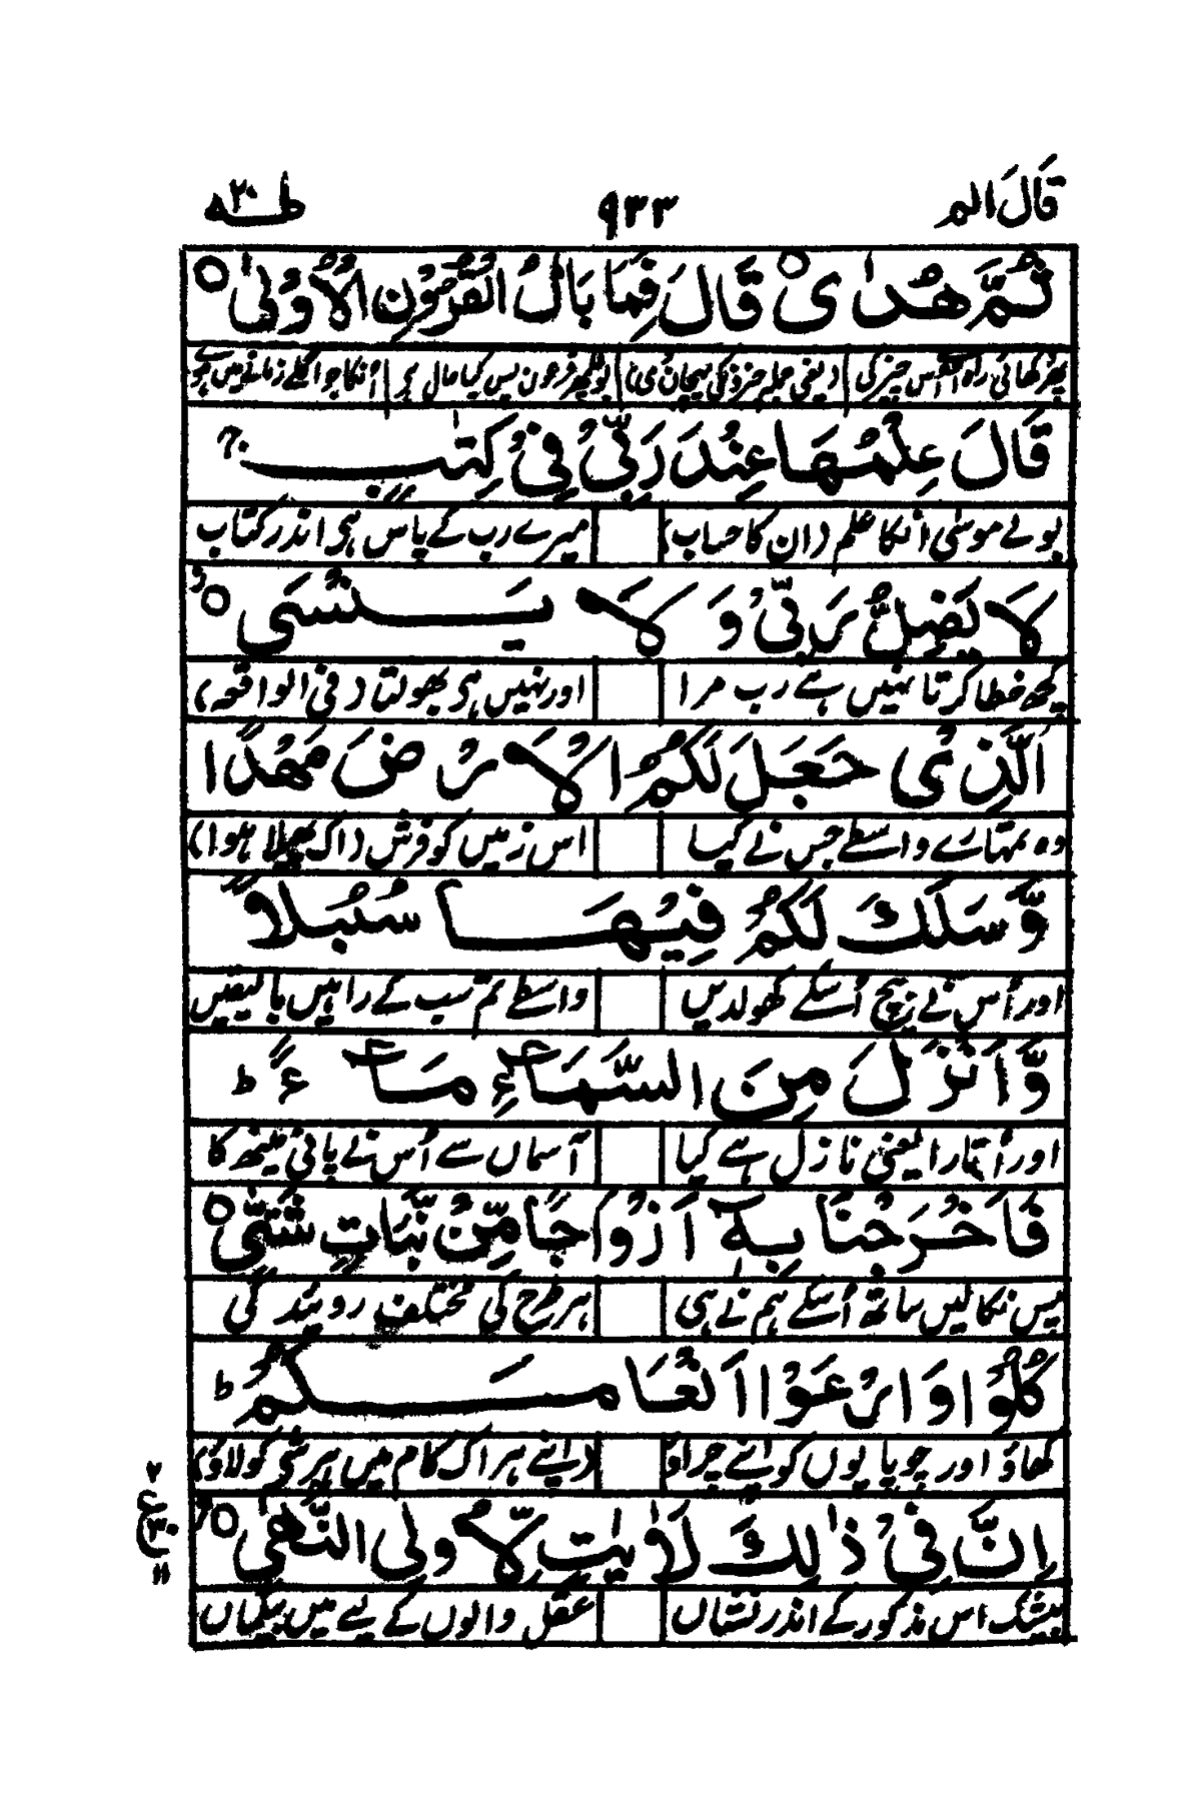 قَالَ الم ۹۳۳ طٰهٰ ۲۰
ثُمَّ هَدٰى ○ قَالَ فَمَا بَالُ الْقُرُوْنِ الْاُوْلٰى ○
پھر دکھائی راہ اُس چیز کی (یعنی جملہ چیزوں کی پہچان دی) بولا پھر فرعون پس کیا حال ہے اُنکا جو اگلے زمانے میں تھے
قَالَ عِلْمُهَا عِنْدَ رَبِّىْ فِىْ كِتٰبٍ ۚ
بولے موسٰی انکا علم (ان کا حساب) میرے رب کے پاس ہی اندر کتاب
لَا يَضِلُّ رَبِّىْ وَ لَا يَنْسَى ○
کچھ خطا کرتا نہیں ہے رب مرا اور نہیں ہے بھولتا (فی الواقعہ)
الَّذِىْ جَعَلَ لَكُمُ الْاَرْضَ مَهْدًا
وہ تمہارے واسطے جس نے کیا اس زمیں کو فرش (اک پھیلا ہوا)
وَّسَلَكَ لَكُمْ فِيْهَا سُبُلًا
اور اُس نے بیچ اُسکے کھولدیں واسطے تم سب کے راہیں بالیقیں
وَّاَنْزَلَ مِنَ السَّمَآءِ مَآءً ط
اور اُتارا یعنی نازل ہے کیا آسماں سے اُس نے پانی مینھ کا
فَاَخْرَجْنَا بِهٖٓ اَزْوَاجًا مِّنْ نَّبَاتٍ شَتّٰى ○
پس نکالیں ساتھ اُسکے ہم نے ہی ہر طرح کی مختلف روئیدگی
كُلُوْا وَارْعَوْا اَنْعَامَكُمْ ط
کھاؤ اور چوپایوں کو اپنے چراؤ (اپنے ہر اک کام میں ہر شی کو لاؤ)
اِنَّ فِىْ ذٰلِكَ لَاٰيٰتٍ لِّاُولِى النُّهٰى ○
بیشک اس مذکور کے اندر نشاں عقل والوں کے لیے ہیں بیگماں